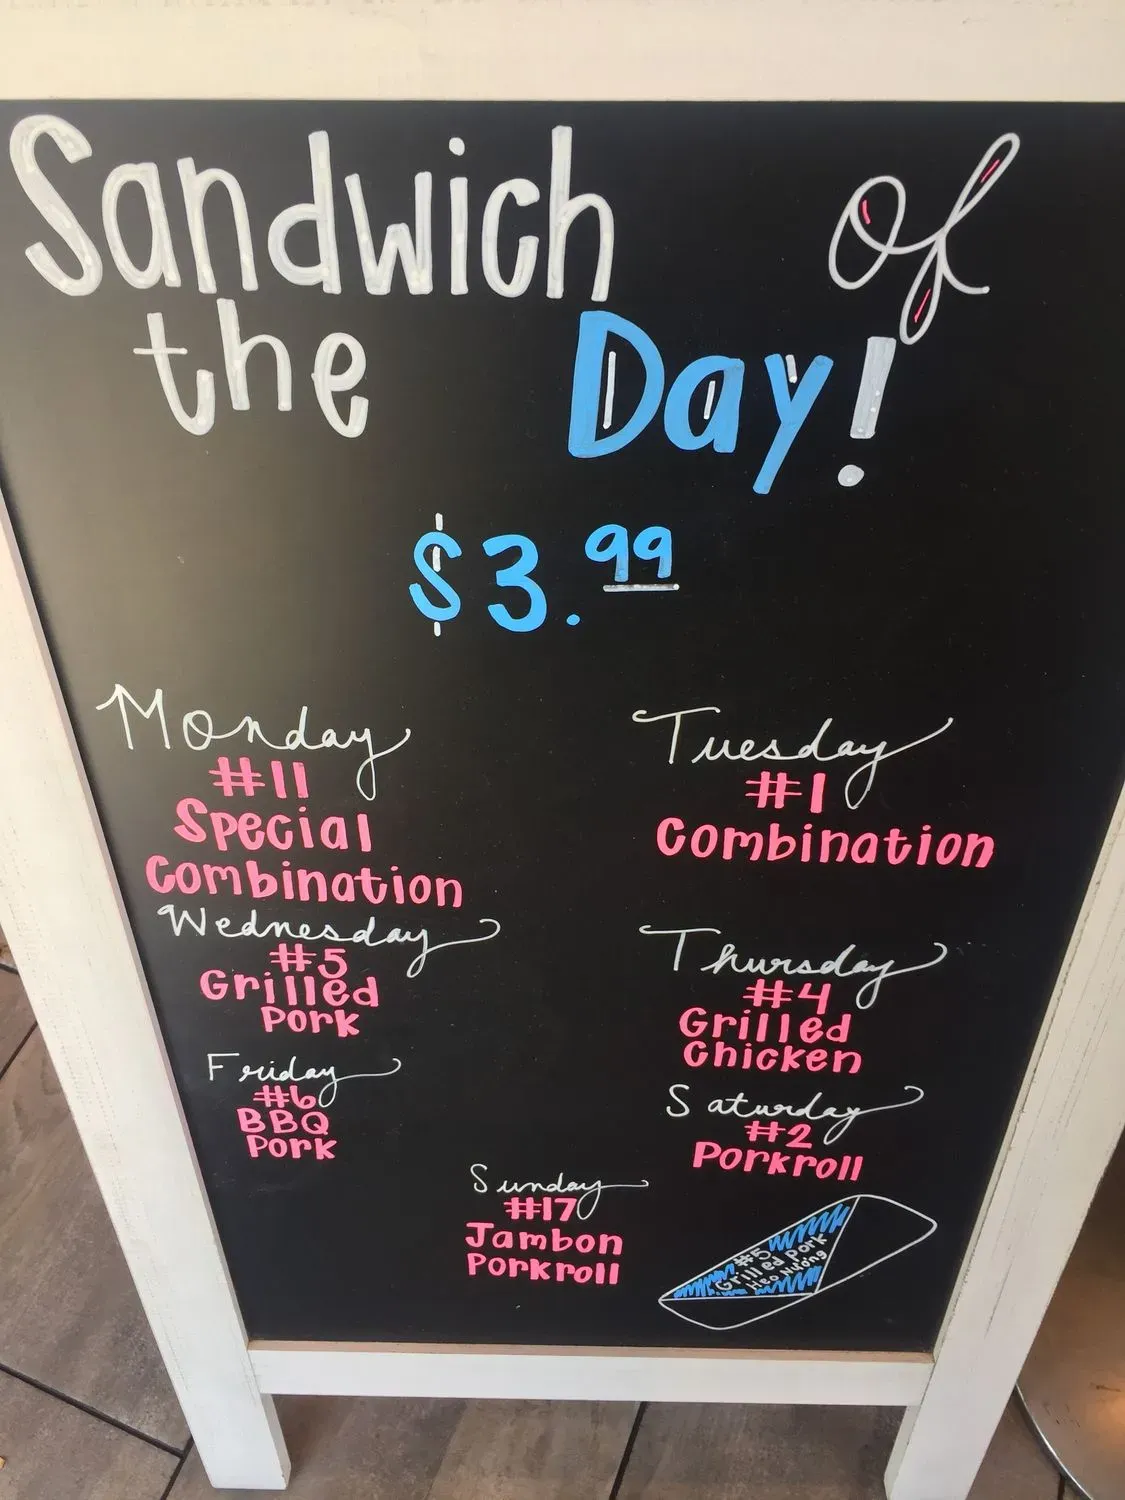 Sandwich Of
the Day!
$3.99
Monday
#11
Special
Combination
Tuesday
#1
Combination
Wednesday
#5
Grilled
Pork
Thursday
#4
Grilled
Chicken
Friday
#6
BBQ
Pork
Saturday
#2
Porkroll
Sunday
#17
Jambon
Porkroll
#5
Grilled Pork
Heo Nướng